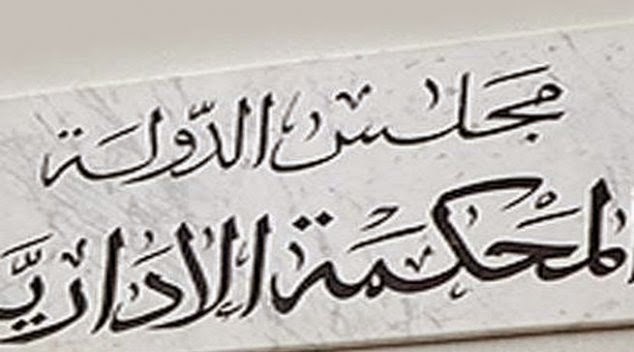 مجلس الدّولة
المحكمة الاداريّ